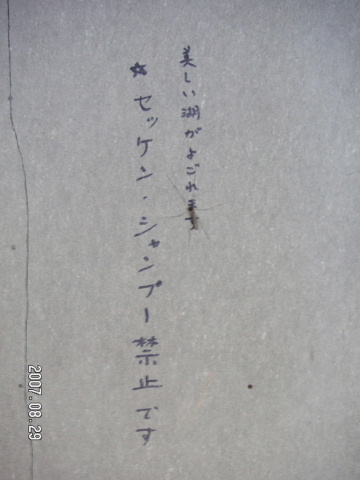 美しい湖がよごれます
☆セッケン・シャンプー禁止です
2007.08.29